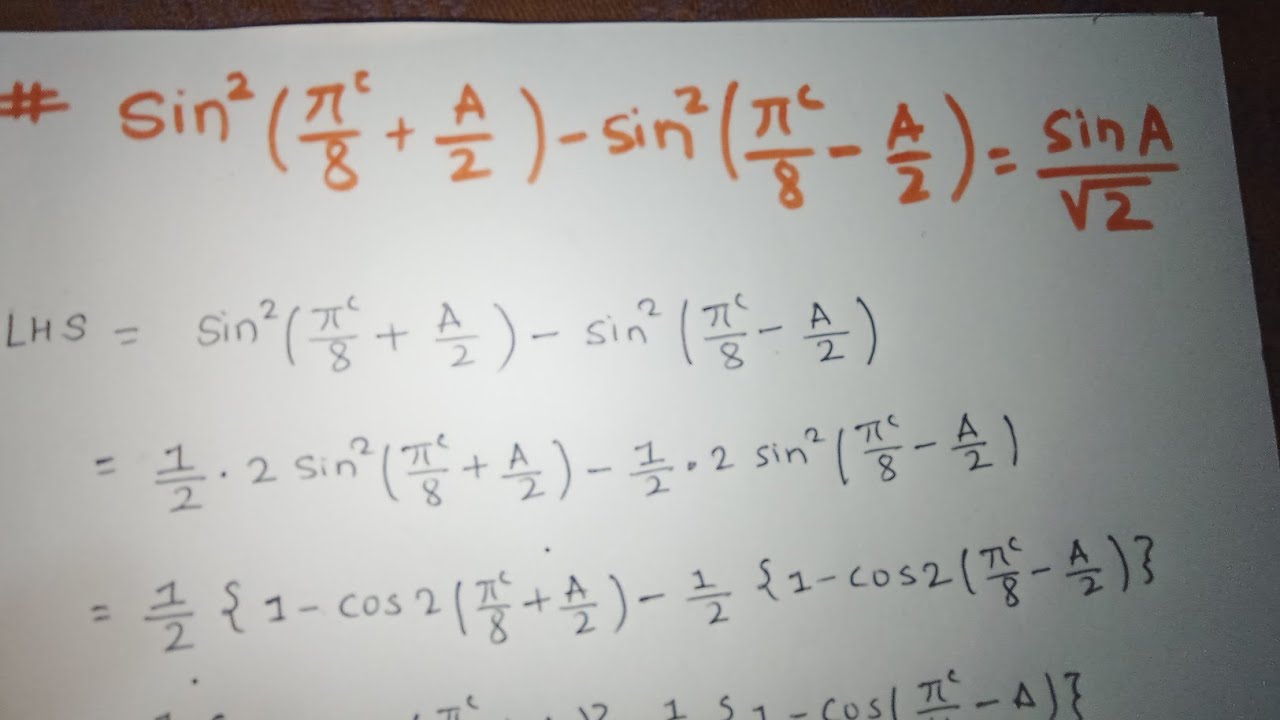 # sin²(πᶜ/8 + A/2) - sin²(πᶜ/8 - A/2) = sinA/√2
LHS = sin²(πᶜ/8 + A/2) - sin²(πᶜ/8 - A/2)
= 1/2 · 2 sin²(πᶜ/8 + A/2) - 1/2 · 2 sin²(πᶜ/8 - A/2)
= 1/2 {1 - cos2(πᶜ/8 + A/2) - 1/2 {1 - cos2(πᶜ/8 - A/2)}
1 - cos(πᶜ - A)}